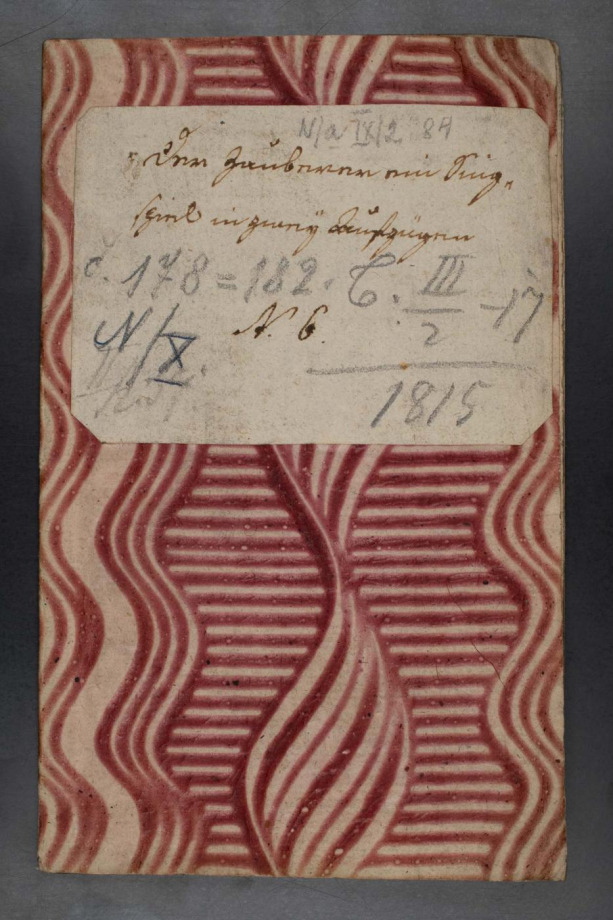 N/a IX/2 84
Der Zauberer ein Sing-
spiel in zweÿ Aufzügen
č. 178=182. C. III/2 -17
N. 6.
N/X.
1815